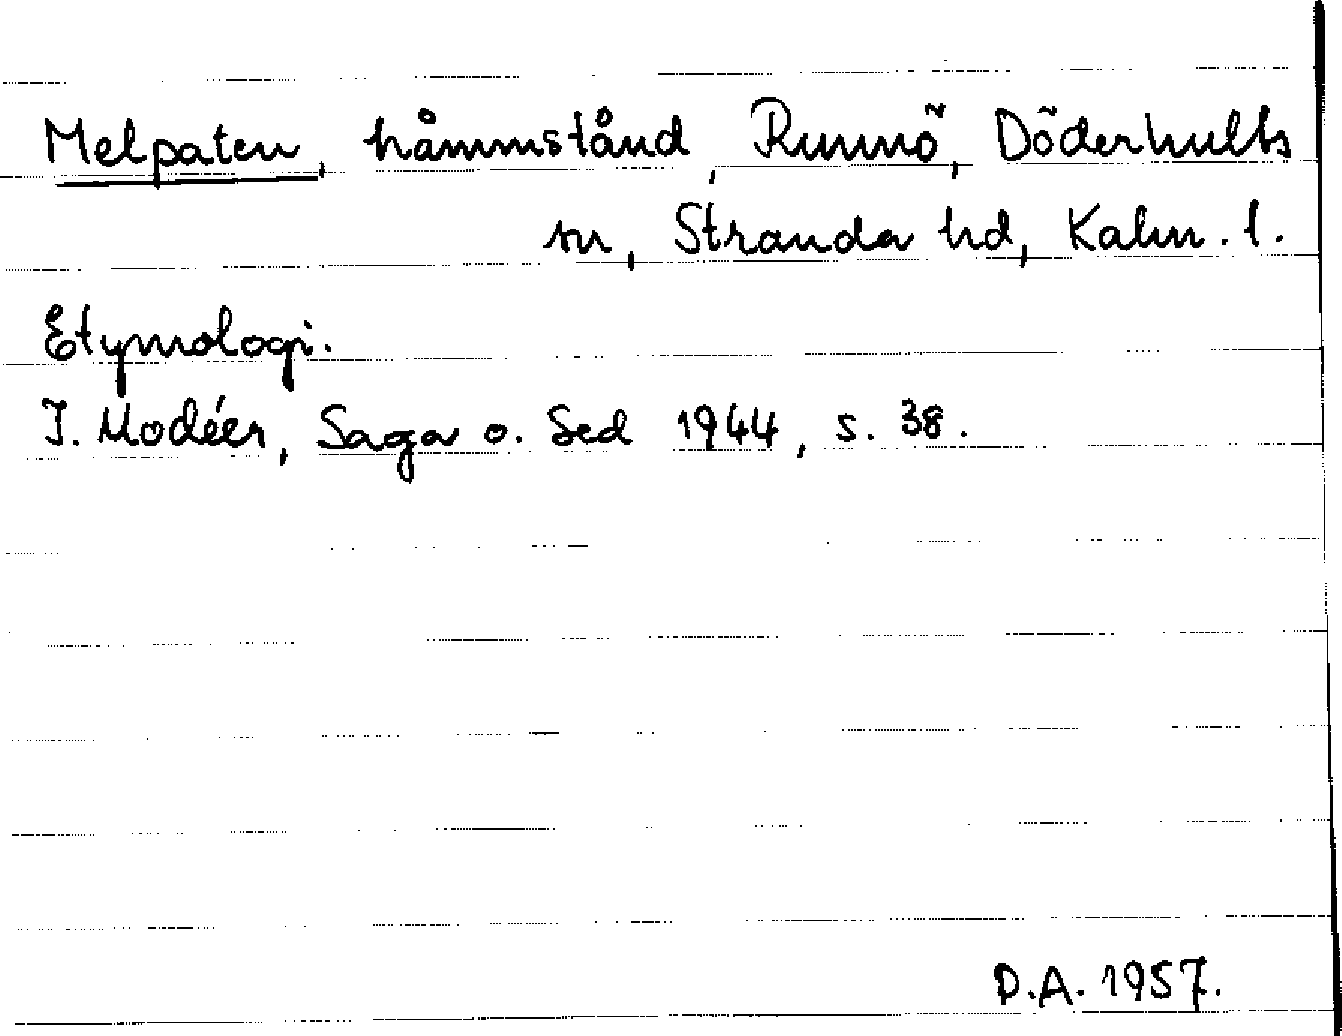 Melpaten, håmmstånd, Runnö, Döderhults
sn, Stranda hd, Kalm. l.
Etymologi.
I. Modéer, Saga o. Sed 1944, s. 38.
D.A. 1957.